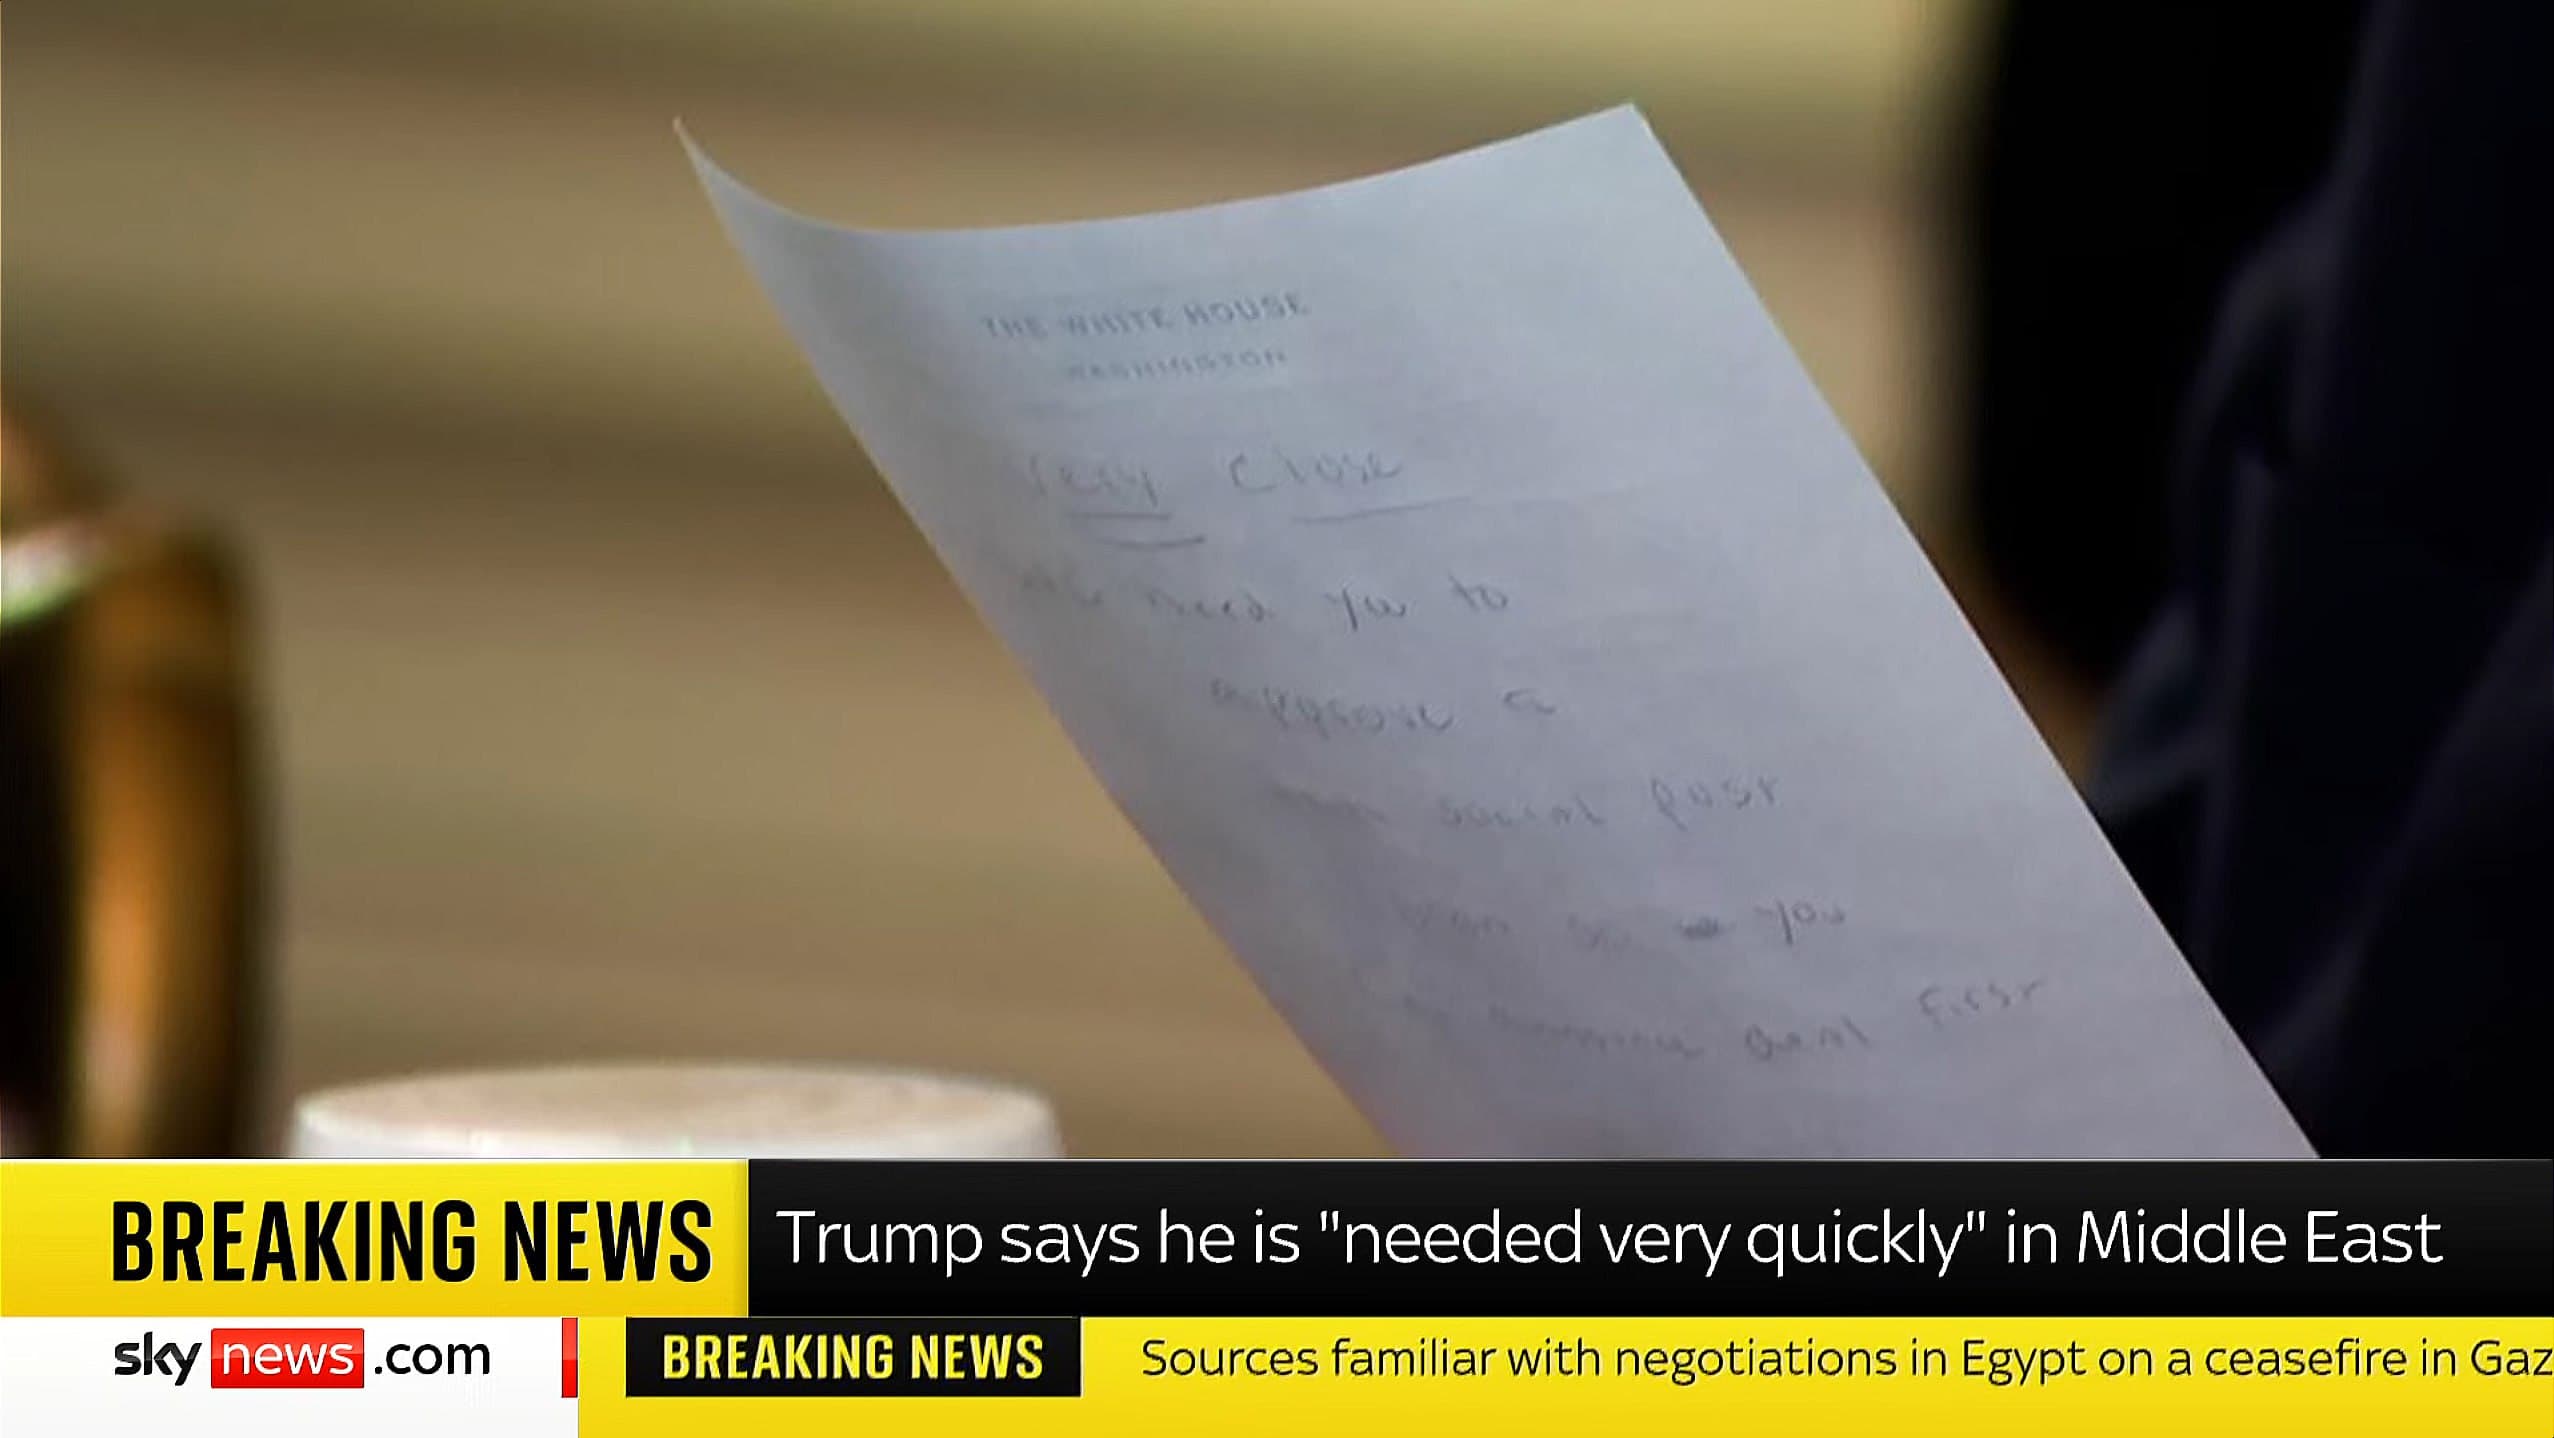 THE WHITE HOUSE
WASHINGTON
Very Close
need you to
approve a
social post
you
deal first
BREAKING NEWS
Trump says he is "needed very quickly" in Middle East
sky news.com
BREAKING NEWS
Sources familiar with negotiations in Egypt on a ceasefire in Gaz